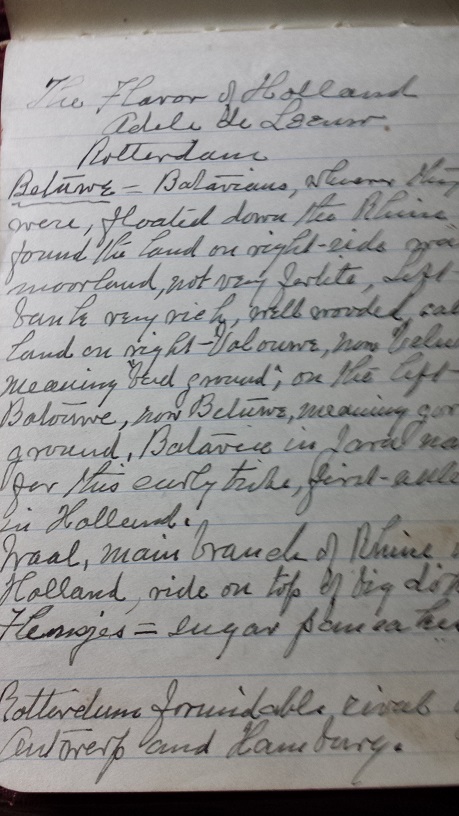 The Flavor of Holland
Adele de Leeuw.
Rotterdam
Betuwe = Batavians, wherever they
were, floated down the Rhine
found the land on right-side was
moorland, not very fertile, Left-
bank very rich, well wooded, cal
land on right-Valouwe, now Velu
meaning "bad ground"; on the left-
Batouwe, now Betuwe, meaning goo
ground. Batavia in Java na
for this early tribe, first-
in Holland.
Waal, main branch of Rhine
Holland, ride on top of big
= sugar pancakes
Rotterdam formidable rival
Antwerp and Hamburg.